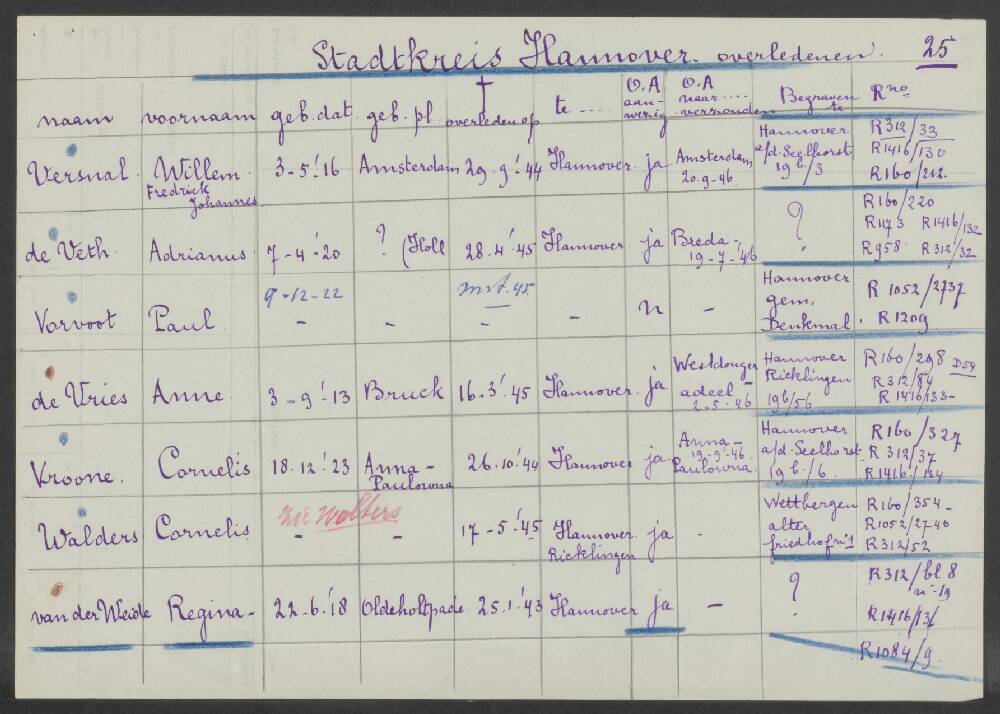 Stadtkreis Hannover. overledenen. 25
naam voornaam geb. dat. geb. pl. † overleden op te .... O.A aanwezig O.A naar .... verzonden Begraven te R no
Versnal. Willem Fredrick Johannes 3-5-'16 Amsterdam 29-9-'44 Hannover. ja Amsterdam 20-9-46. Hannover a/d. Seelhorst 19b/3 R312/33 R1416/130 R160/212.
de Veth. Adrianus 7-4-'20 ? (Holl 28.4.'45 Hannover ja Breda - 19-7-'46 ? R160/220 R1173 R1416/132 R958 R312/32
Vorvoot Paul 9-12-22 - - mrt.45 - - n - Hannover gem. Denkmal. R1052/2737 R1209
de Vries Anne 3-9-'13 Bruck 16-3.'45 Hannover ja Westdongeradeel - 2-5-46 Hannover Ricklingen 19b/56 R160/298 D54 R312/84 R1416/133-
Kroone. Cornelis 18.12.'23 Anna-Paulowna 26.10.'44 Hannover ja. Anna- 19-9-46. Paulowna. Hannover a/d. Seelhorst 19b/6. R160/327 R312/37 R1416/134
Walders Cornelis zie Wolters - - 17-5.'45 Hannover Ricklingen ja - Wettbergen alter friedhof no 1 R160/354- R1052/2746 R312/52
van der Weide Regina- 22-6.'18 Oldeholtpade 25.1.'43 Hannover ja - ? R312/bl 8 no-19 R1416/136 R1084/9.